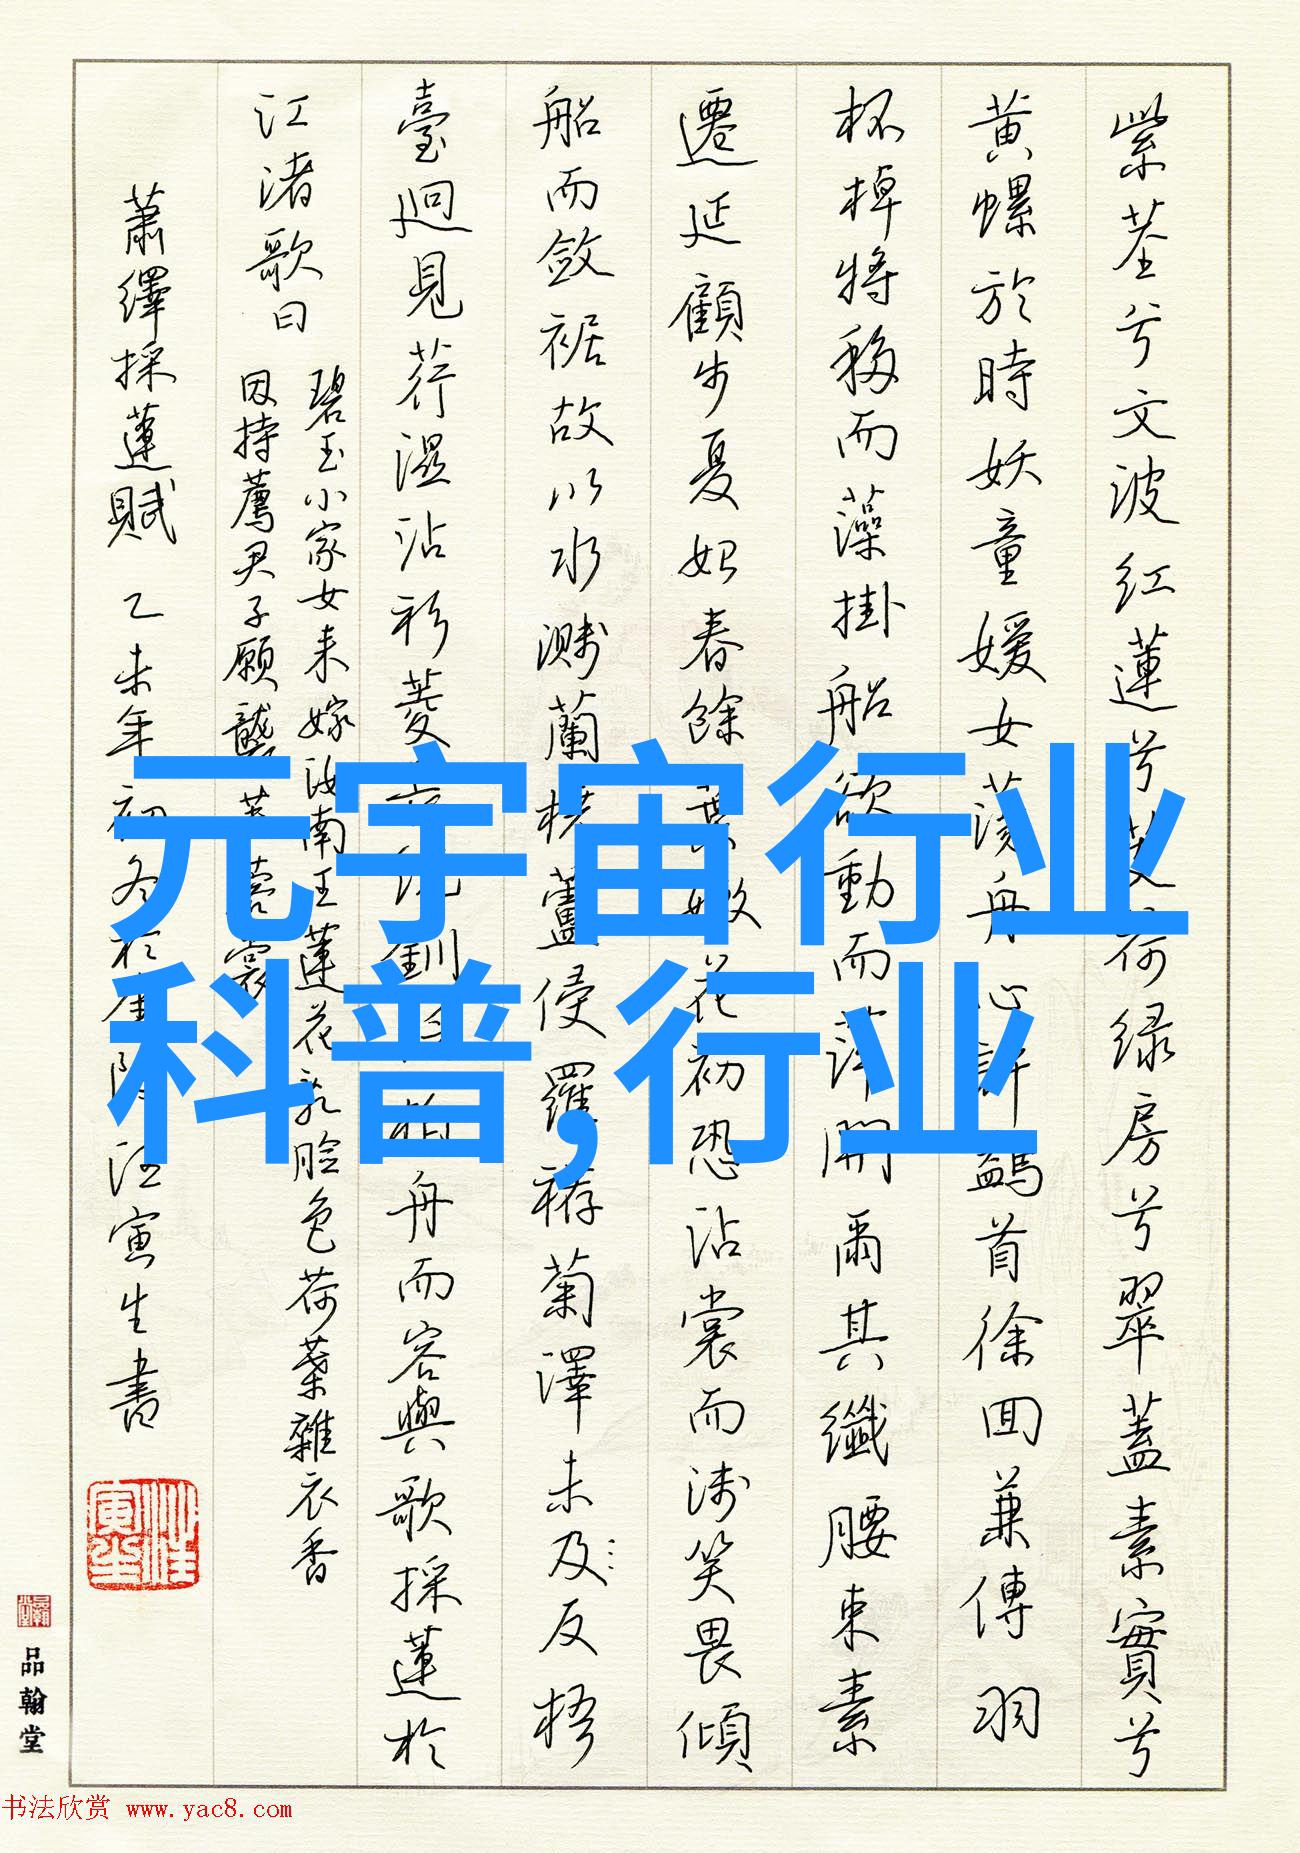 紫茎兮文波红蓮兮芰荷绿房兮翠蓋素實兮
黄螺於時妖童媛女荡舟心許鷁首徐回兼傳羽
杯棹将移而藻掛船欲動而萍開爾其纖腰束素
遷延顧步夏始春餘葉嫩花初恐沾裳而浅笑畏傾
船而斂裾故以水濺蘭橈蘆侵羅袸菊澤未及反梧
臺迥見荇濕沾衫菱
舟而容與歌採蓮於
江渚歌曰
碧玉小家女来嫁汝南王蓮花乱脸色荷葉雜衣香
因持薦君子願襲芙蓉裳
蕭繹採蓮賦 乙未年初冬於
汪寅生書
元宇宙行业
科普,行业
品翰堂
书法欣赏 www.yac8.com